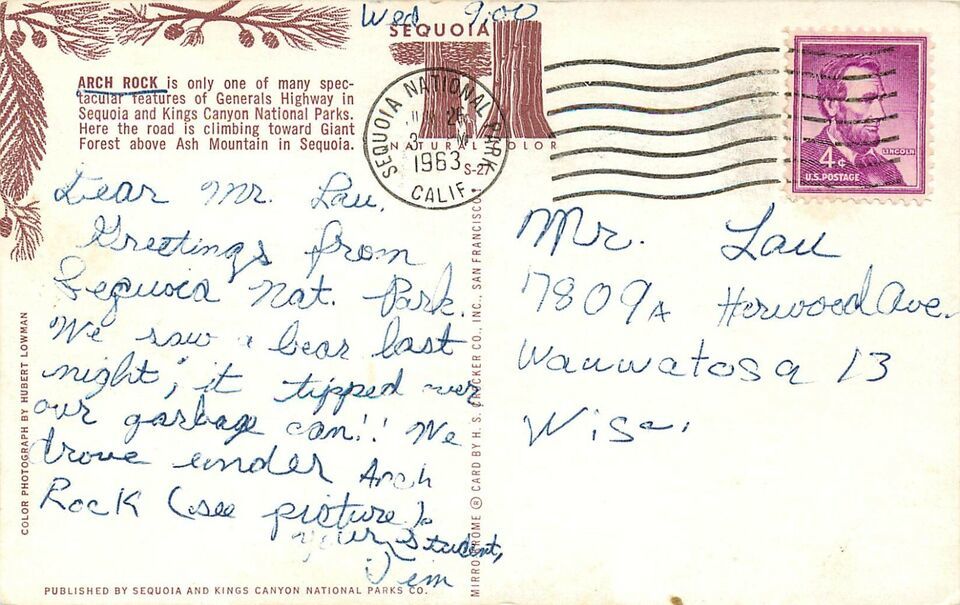 Wed 9:00
SEQUOIA
ARCH ROCK is only one of many spec-
tacular features of Generals Highway in
Sequoia and Kings Canyon National Parks.
Here the road is climbing toward Giant
Forest above Ash Mountain in Sequoia.
NATURAL COLOR
S-27
SEQUOIA NATIONAL PARK
1963
CALIF.
LINCOLN
4¢
U.S. POSTAGE
Dear Mr. Lau,
Greetings from
Sequoia Nat. Park.
We saw a bear last
night, it tipped over
our garbage can!! We
drove under Arch
Rock (see picture).
your student,
Jim
Mr. Lau
17809A Ave.
Wauwatosa 13
Wisc.
COLOR PHOTOGRAPH BY HUBERT LOWMAN
MIRRO-KROME ® CARD BY H. S. CROCKER CO., INC., SAN FRANCISCO
PUBLISHED BY SEQUOIA AND KINGS CANYON NATIONAL PARKS CO.